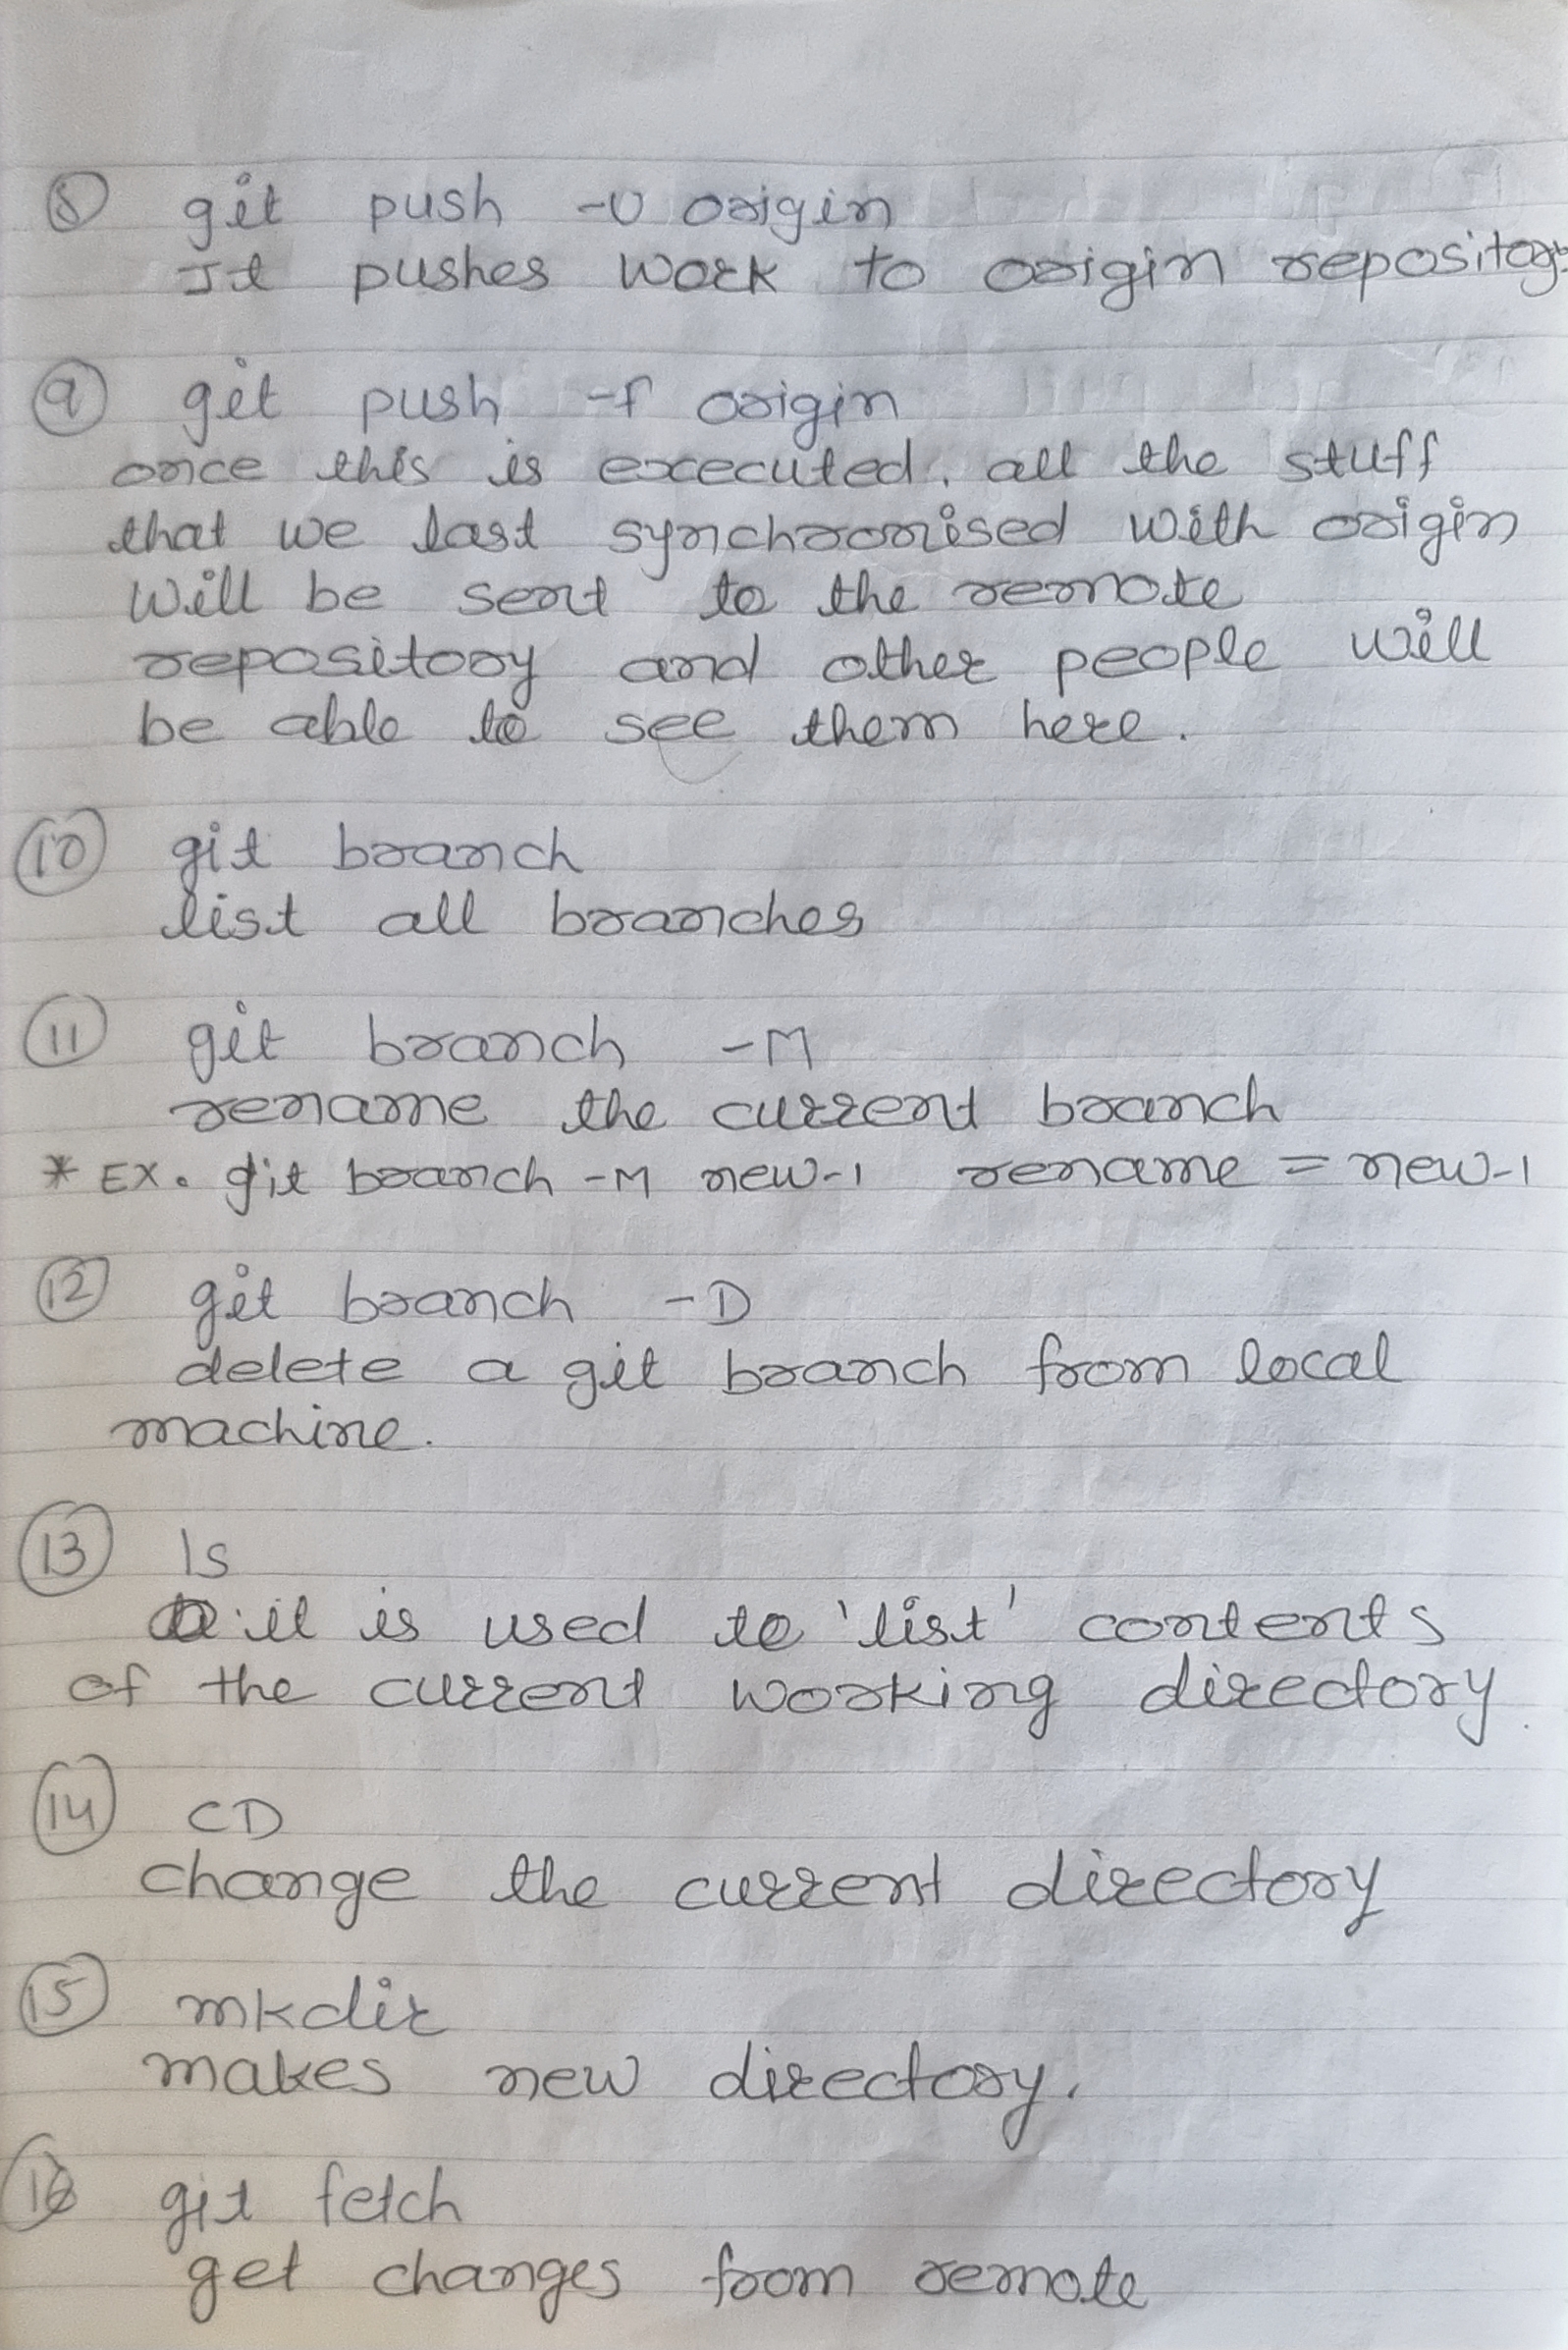 8 git push -u origin
It pushes work to origin repository.
9 git push -f origin
once this is executed, all the stuff
that we last synchronised with origin
will be sent to the remote
repository and other people will
be able to see them here.
10 git branch
list all branches
11 git branch -M
rename the current branch
* EX. git branch -M new-1 rename = new-1
12 git branch -D
delete a git branch from local
machine.
13 ls
it is used to 'list' contents
of the current working directory.
14 CD
change the current directory
15 mkdir
makes new directory.
16 git fetch
get changes from remote